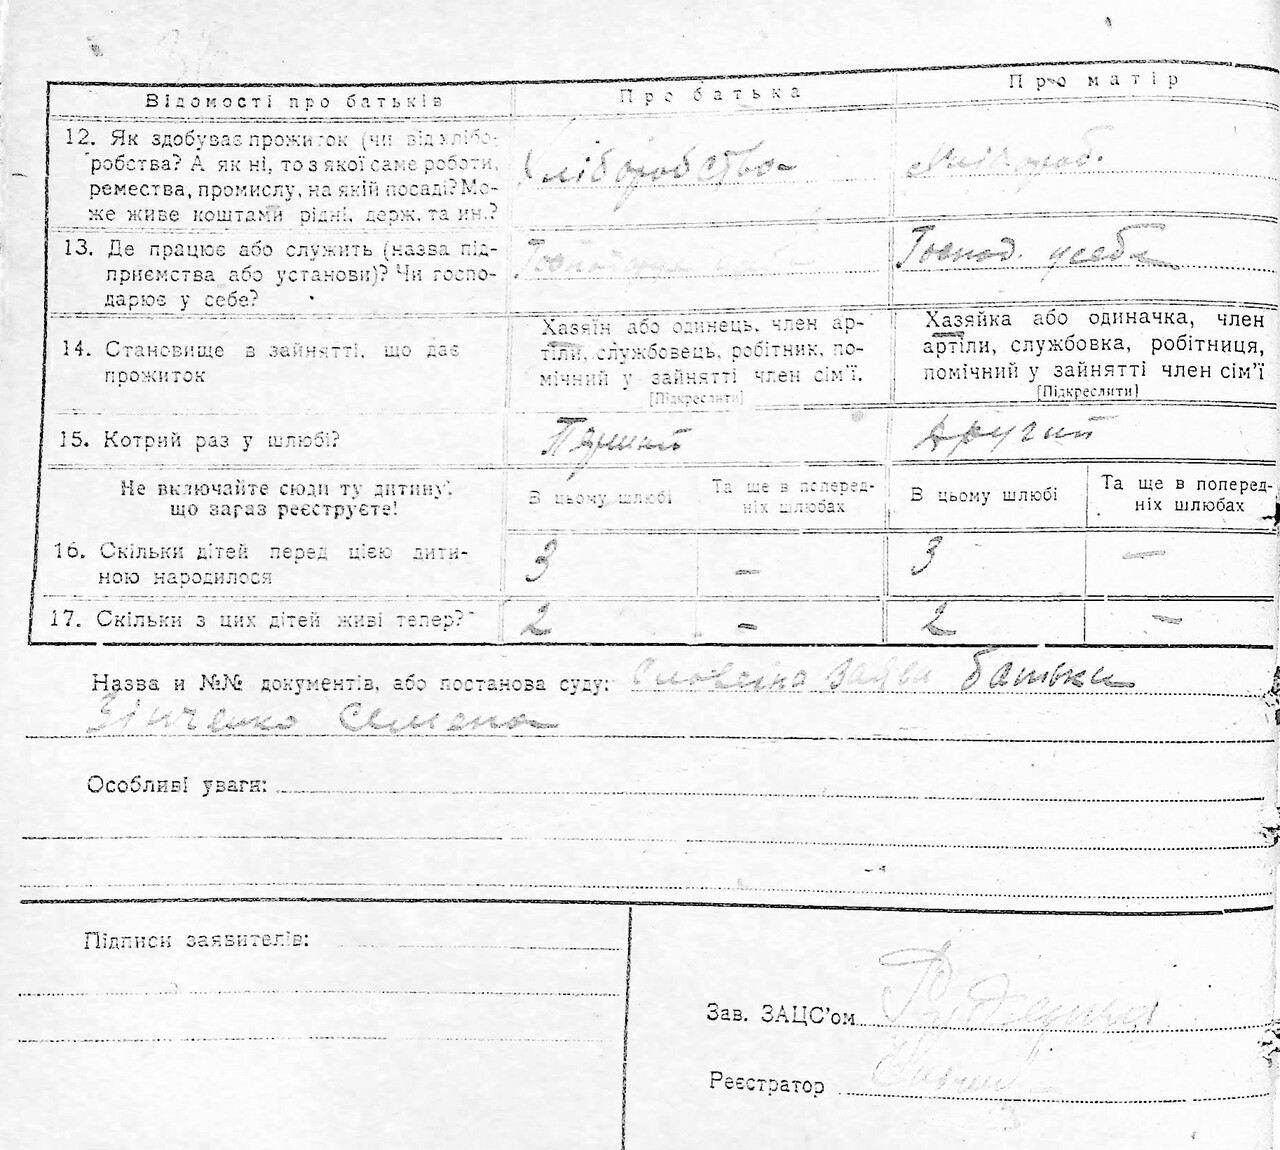 Відомості про батьків
Про батька
Про матір
12. Як здобуває прожиток (чи від хлібо-
робства? А як ні, то з якої саме роботи,
ремества, промислу, на якій посаді? Мо-
же живе коштами рідні, держ. та ин.?
Хліборобство
Хлібороб.
13. Де працює або служить (назва під-
приємства або установи)? Чи госпо-
дарює у себе?
Господ. усебе
14. Становище в зайнятті, що дає
прожиток
Хазяїн або одинець, член ар-
тіли, службовець, робітник, по-
мічний у зайнятті член сім'ї.
[Підкреслити]
Хазяйка або одиначка, член
артіли, службовка, робітниця,
помічний у зайнятті член сім'ї
[Підкреслити]
15. Котрий раз у шлюбі?
Перший
Другий
Не включайте сюди ту дитину,
що зараз реєструєте!
В цьому шлюбі
Та ще в поперед-
ніх шлюбах
В цьому шлюбі
Та ще в поперед-
ніх шлюбах
16. Скільки дітей перед цією дити-
ною народилося
3 – 3 –
17. Скільки з цих дітей живі тепер?
2 – 2 –
Назва и №№ документів, або постанова суду: Словесна заява батька
Зінченко Семена
Особливі уваги:
Підписи заявителів:
Зав. ЗАЦС'ом
Реєстратор